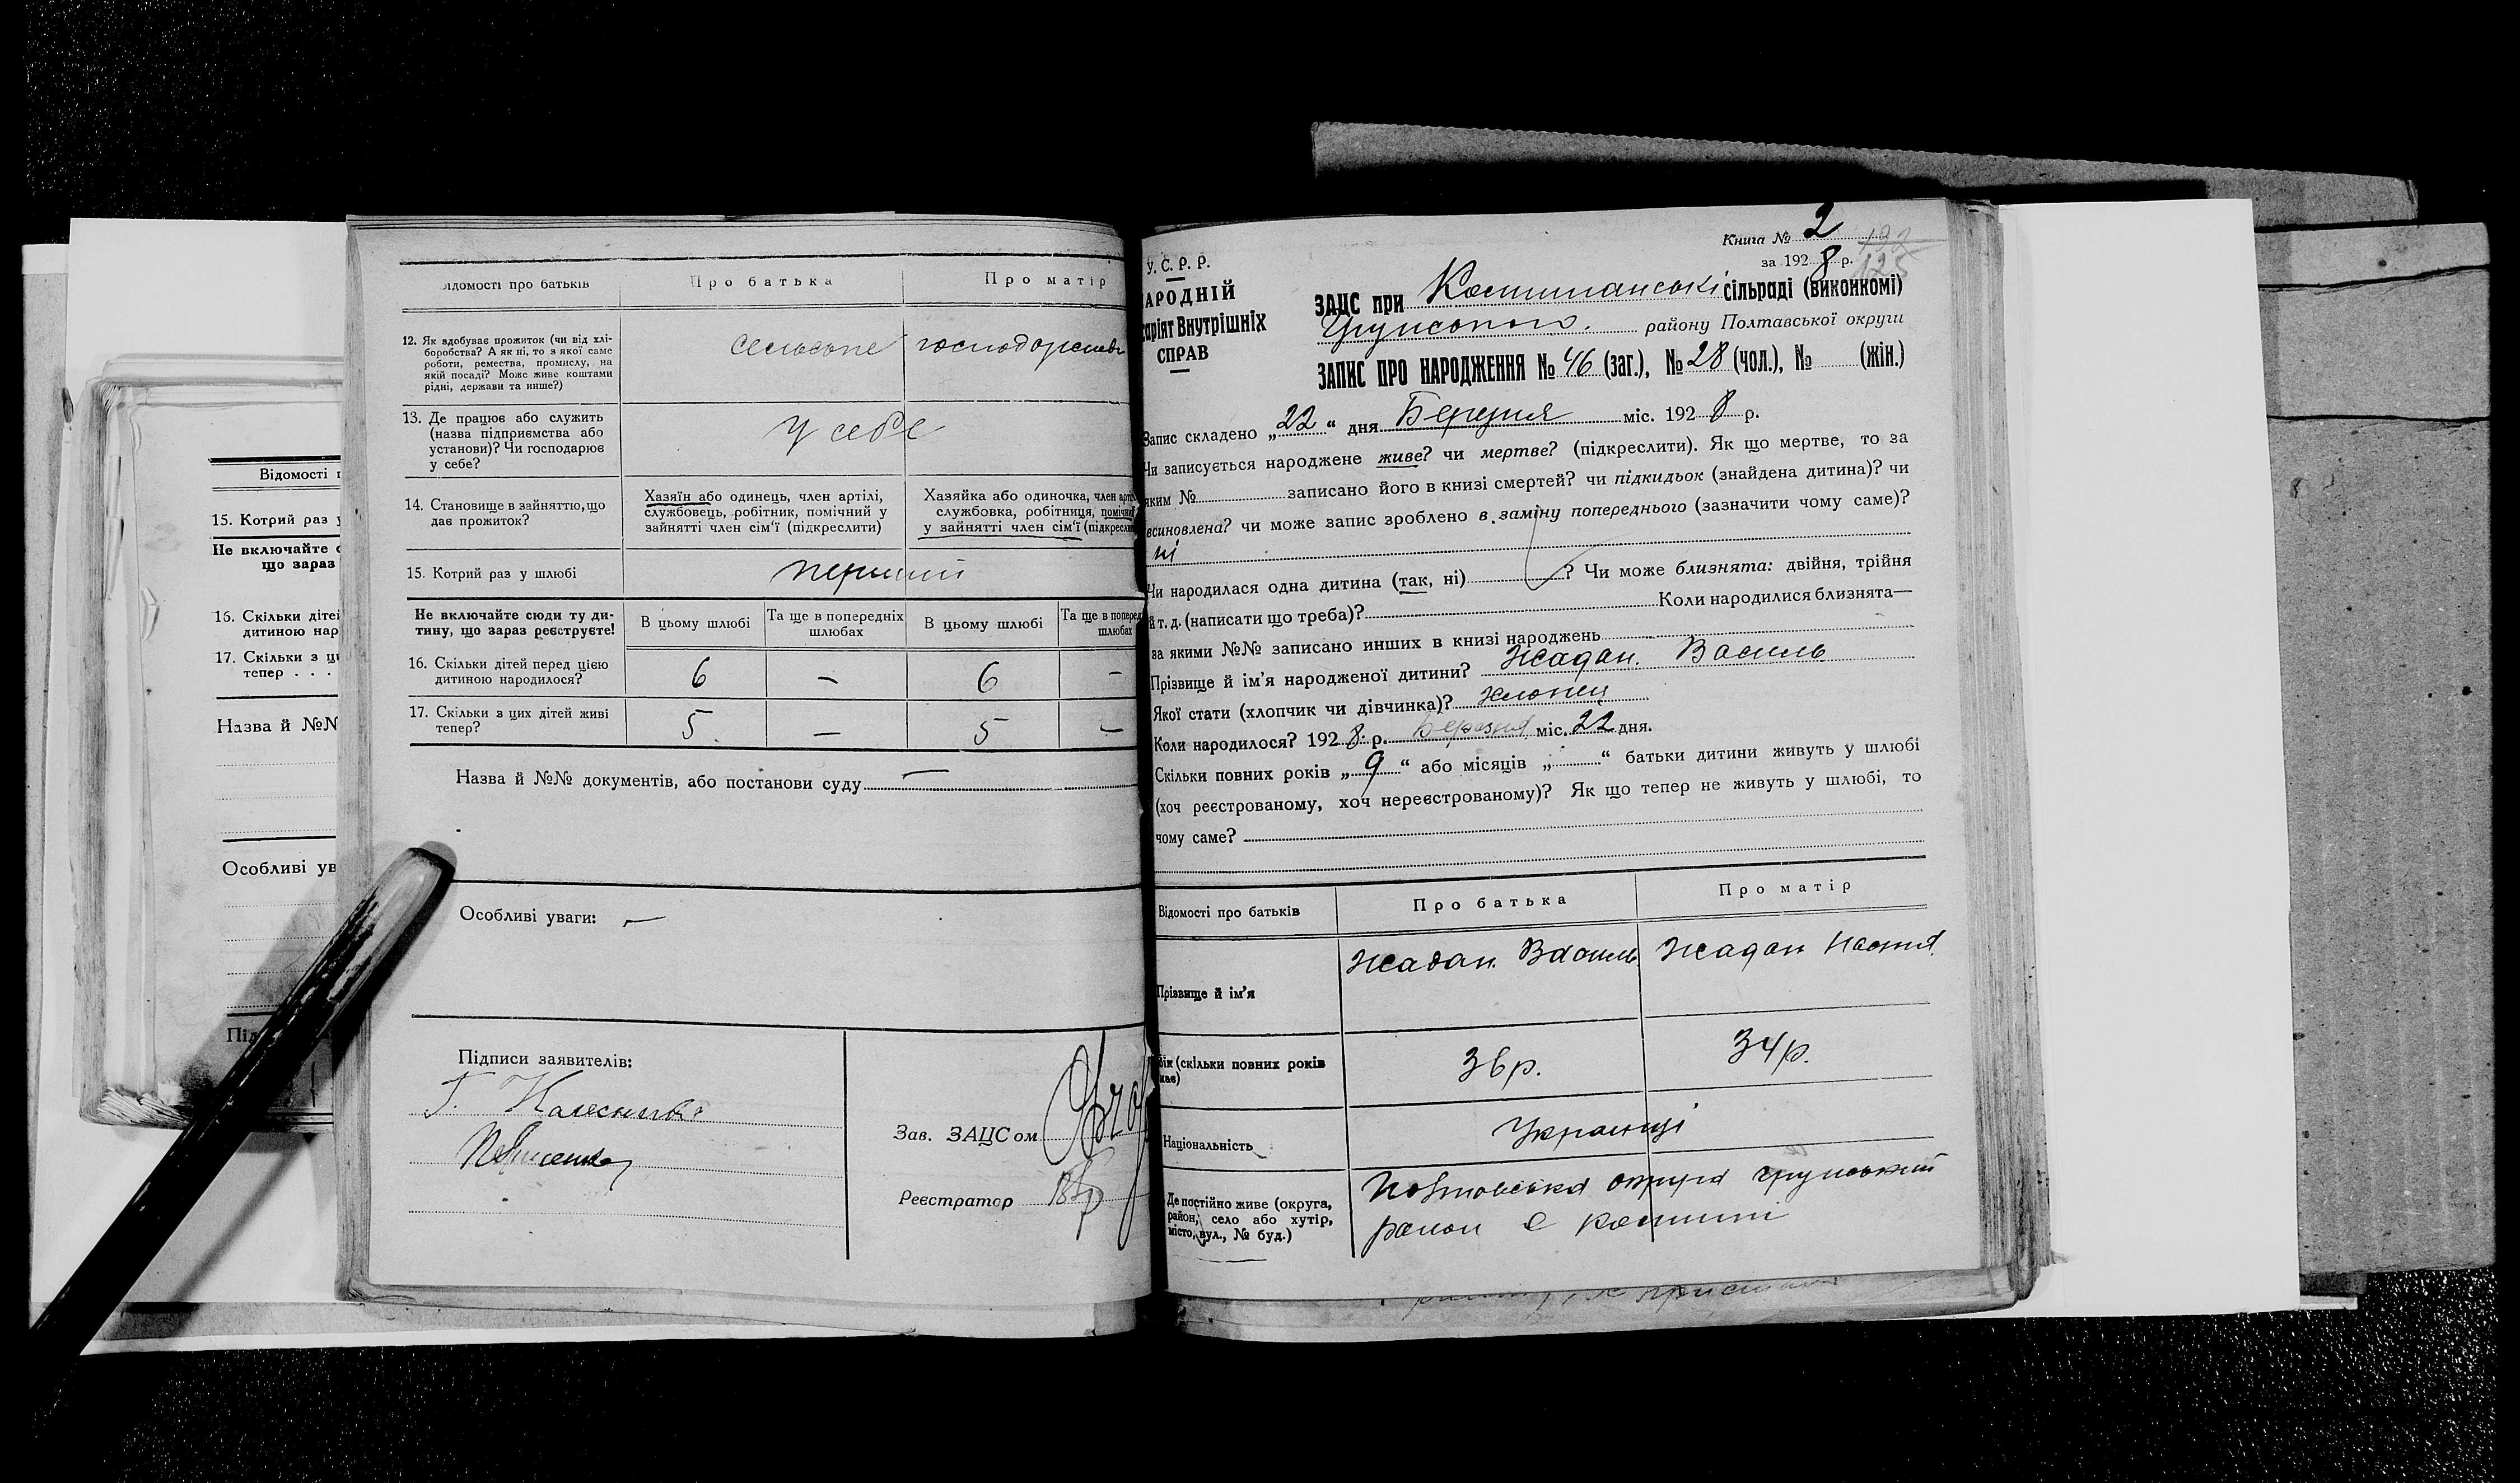 Відомості п
15. Котрий раз у
Не включайте с
що зараз
16. Скільки діте
дитиною нар
17. Скільки з ц
тепер . . .
Назва й №№
Особливі ув
Під
ідомості про батьків Про батька Про матір
12. Як здобуває прожиток (чи від хлі-
боробства? А як ні, то з якої саме
роботи, ремества, промислу, на
якій посаді? Може живе коштами
рідні, держави та инше?)
сельське господарство
13. Де працює або служить
(назва підприємства або
установи)? Чи господарює
у себе?
у себе
14. Становище в зайняттю, що
дає прожиток?
Хазяїн або одинець, член артілі,
службовець, робітник, помічний у
зайнятті член сім'ї (підкреслити)
Хазяйка або одиночка, член арті
службовка, робітниця, помічни
у зайнятті член сім'ї (підкресли
15. Котрий раз у шлюбі перший
Не включайте сюди ту ди-
тину, що зараз реєструєте!
В цьому шлюбі Та ще в попередніх шлюбах В цьому шлюбі Та ще в поперед шлюбах
16. Скільки дітей перед цією
дитиною народилося?
6 — 6 —
17. Скільки з цих дітей живі
тепер?
5 — 5 —
Назва й №№ документів, або постанови суду —
Особливі уваги: —
Підписи заявителів:
Зав. ЗАЦСом
Реєстратор
Книга № 2
за 1928 р.
125
У. С. Р. Р.
АРОДНІЙ
саріят Внутрішніх
СПРАВ
ЗАЦС при сільраді (виконкомі)
Грунського району Полтавської округи
ЗАПИС ПРО НАРОДЖЕННЯ № 46 (заг.), № 28 (чол.), № (жін.)
Запис складено „22“ дня Березня міс. 1928 р.
Чи записується народжене живе? чи мертве? (підкреслити). Як що мертве, то за
яким № записано його в книзі смертей? чи підкидьок (знайдена дитина)? чи
всиновлена? чи може запис зроблено в заміну попереднього (зазначити чому саме)?
ні
Чи народилася одна дитина (так, ні) ? Чи може близнята: двійня, трійня
й т. д. (написати що треба)? Коли народилися близнята—
за якими №№ записано инших в книзі народжень
Прізвище й ім'я народженої дитини? Жадан Василь
Якої стати (хлопчик чи дівчинка)? Хлопец
Коли народилося? 1928 р. Березня міс. 22 дня.
Скільки повних років „9“ або місяців „ “ батьки дитини живуть у шлюбі
(хоч реєстрованому, хоч нереєстрованому)? Як що тепер не живуть у шлюбі, то
чому саме?
Відомості про батьків Про батька Про матір
Прізвище й ім'я
Жадан Василь Жадан Настя
Вік (скільки повних років
має)
36р. 34р.
Національність Українці
Де постійно живе (округа,
район, село або хутір,
місто, вул., № буд.)
Полтавська округа грунський
район с